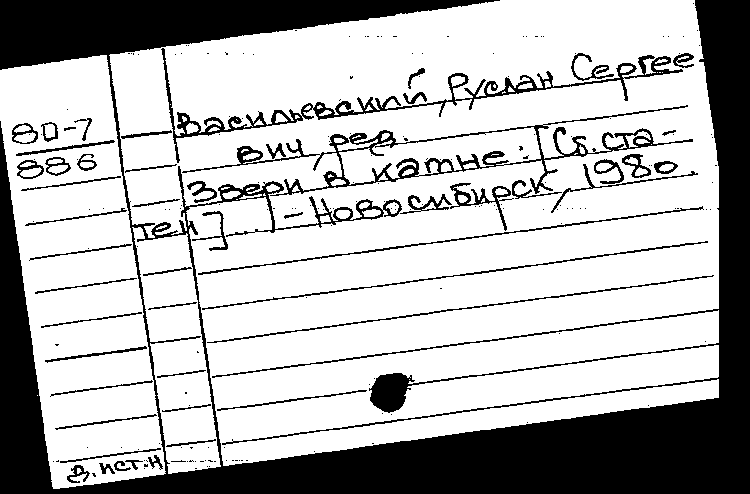 80-7
886
Васильевский, Руслан Сергее-
вич, ред.
Звери в камне: [Сб. ста-
тей] ... - Новосибирск, 1980.
д. ист. н